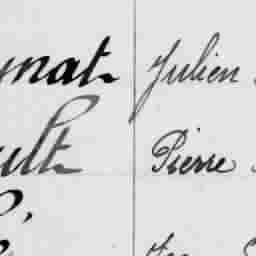 ynat Julien
ult Pierre